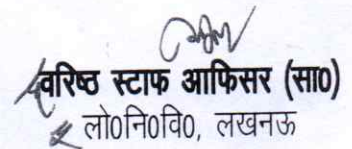 वरिष्ठ स्टाफ आफिसर (सा0)
लो0नि0वि0, लखनऊ